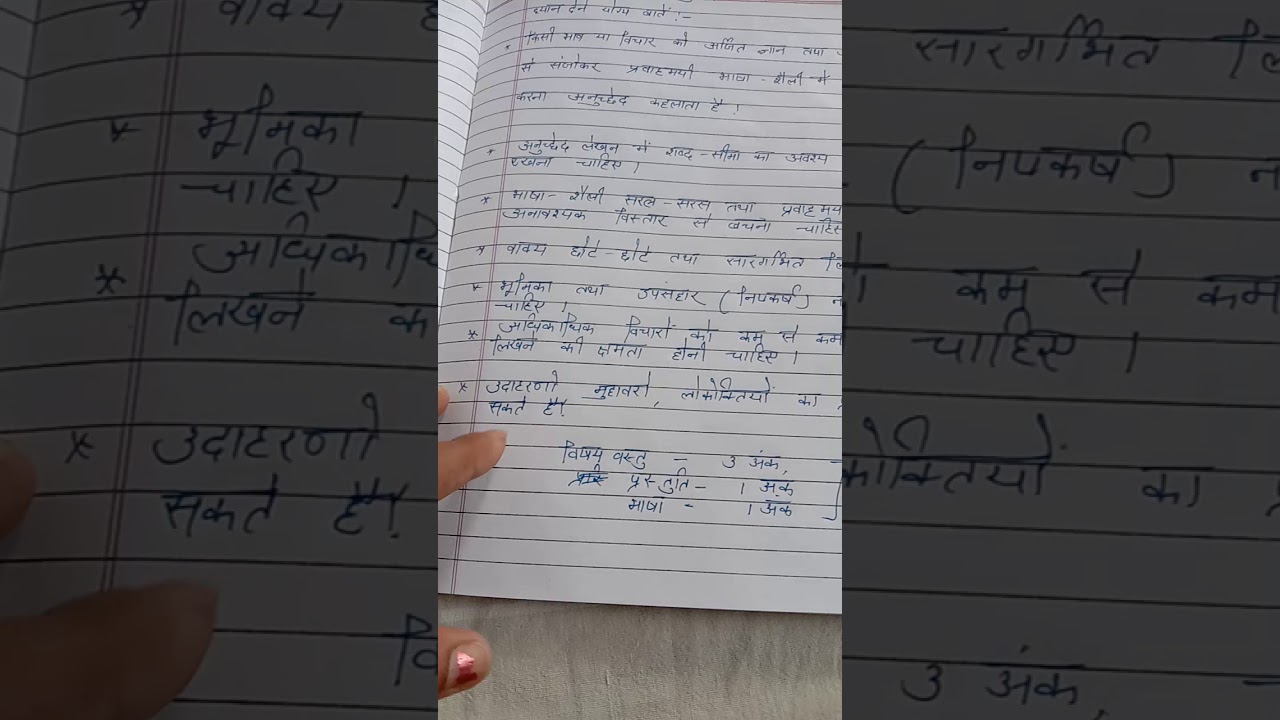 ध्यान देने योग्य बातें :-
* किसी भाव या विचार को अर्जित ज्ञान तथा
से संजोकर प्रवाहमयी भाषा - शैली में
करना अनुच्छेद कहलाता है ।
* अनुच्छेद लेखन में शब्द - सीमा का अवश्य
रखना चाहिए ।
* भाषा - शैली सरल - सरस तथा प्रवाहमय
अनावश्यक विस्तार से बचना चाहिए
* वाक्य छोटे - छोटे तथा सारगर्भित
* भूमिका तथा उपसंहार (निपकर्ष)
चाहिए ।
* अधिकाधिक विचारों को कम से कम
लिखने की क्षमता होनी चाहिए ।
* उदाहरणो मुहावरो, लोकोक्तियों का
सकते है।
विषय वस्तु - 3 अंक,
प्रस्तुति - 1 अंक
भाषा - 1 अंक